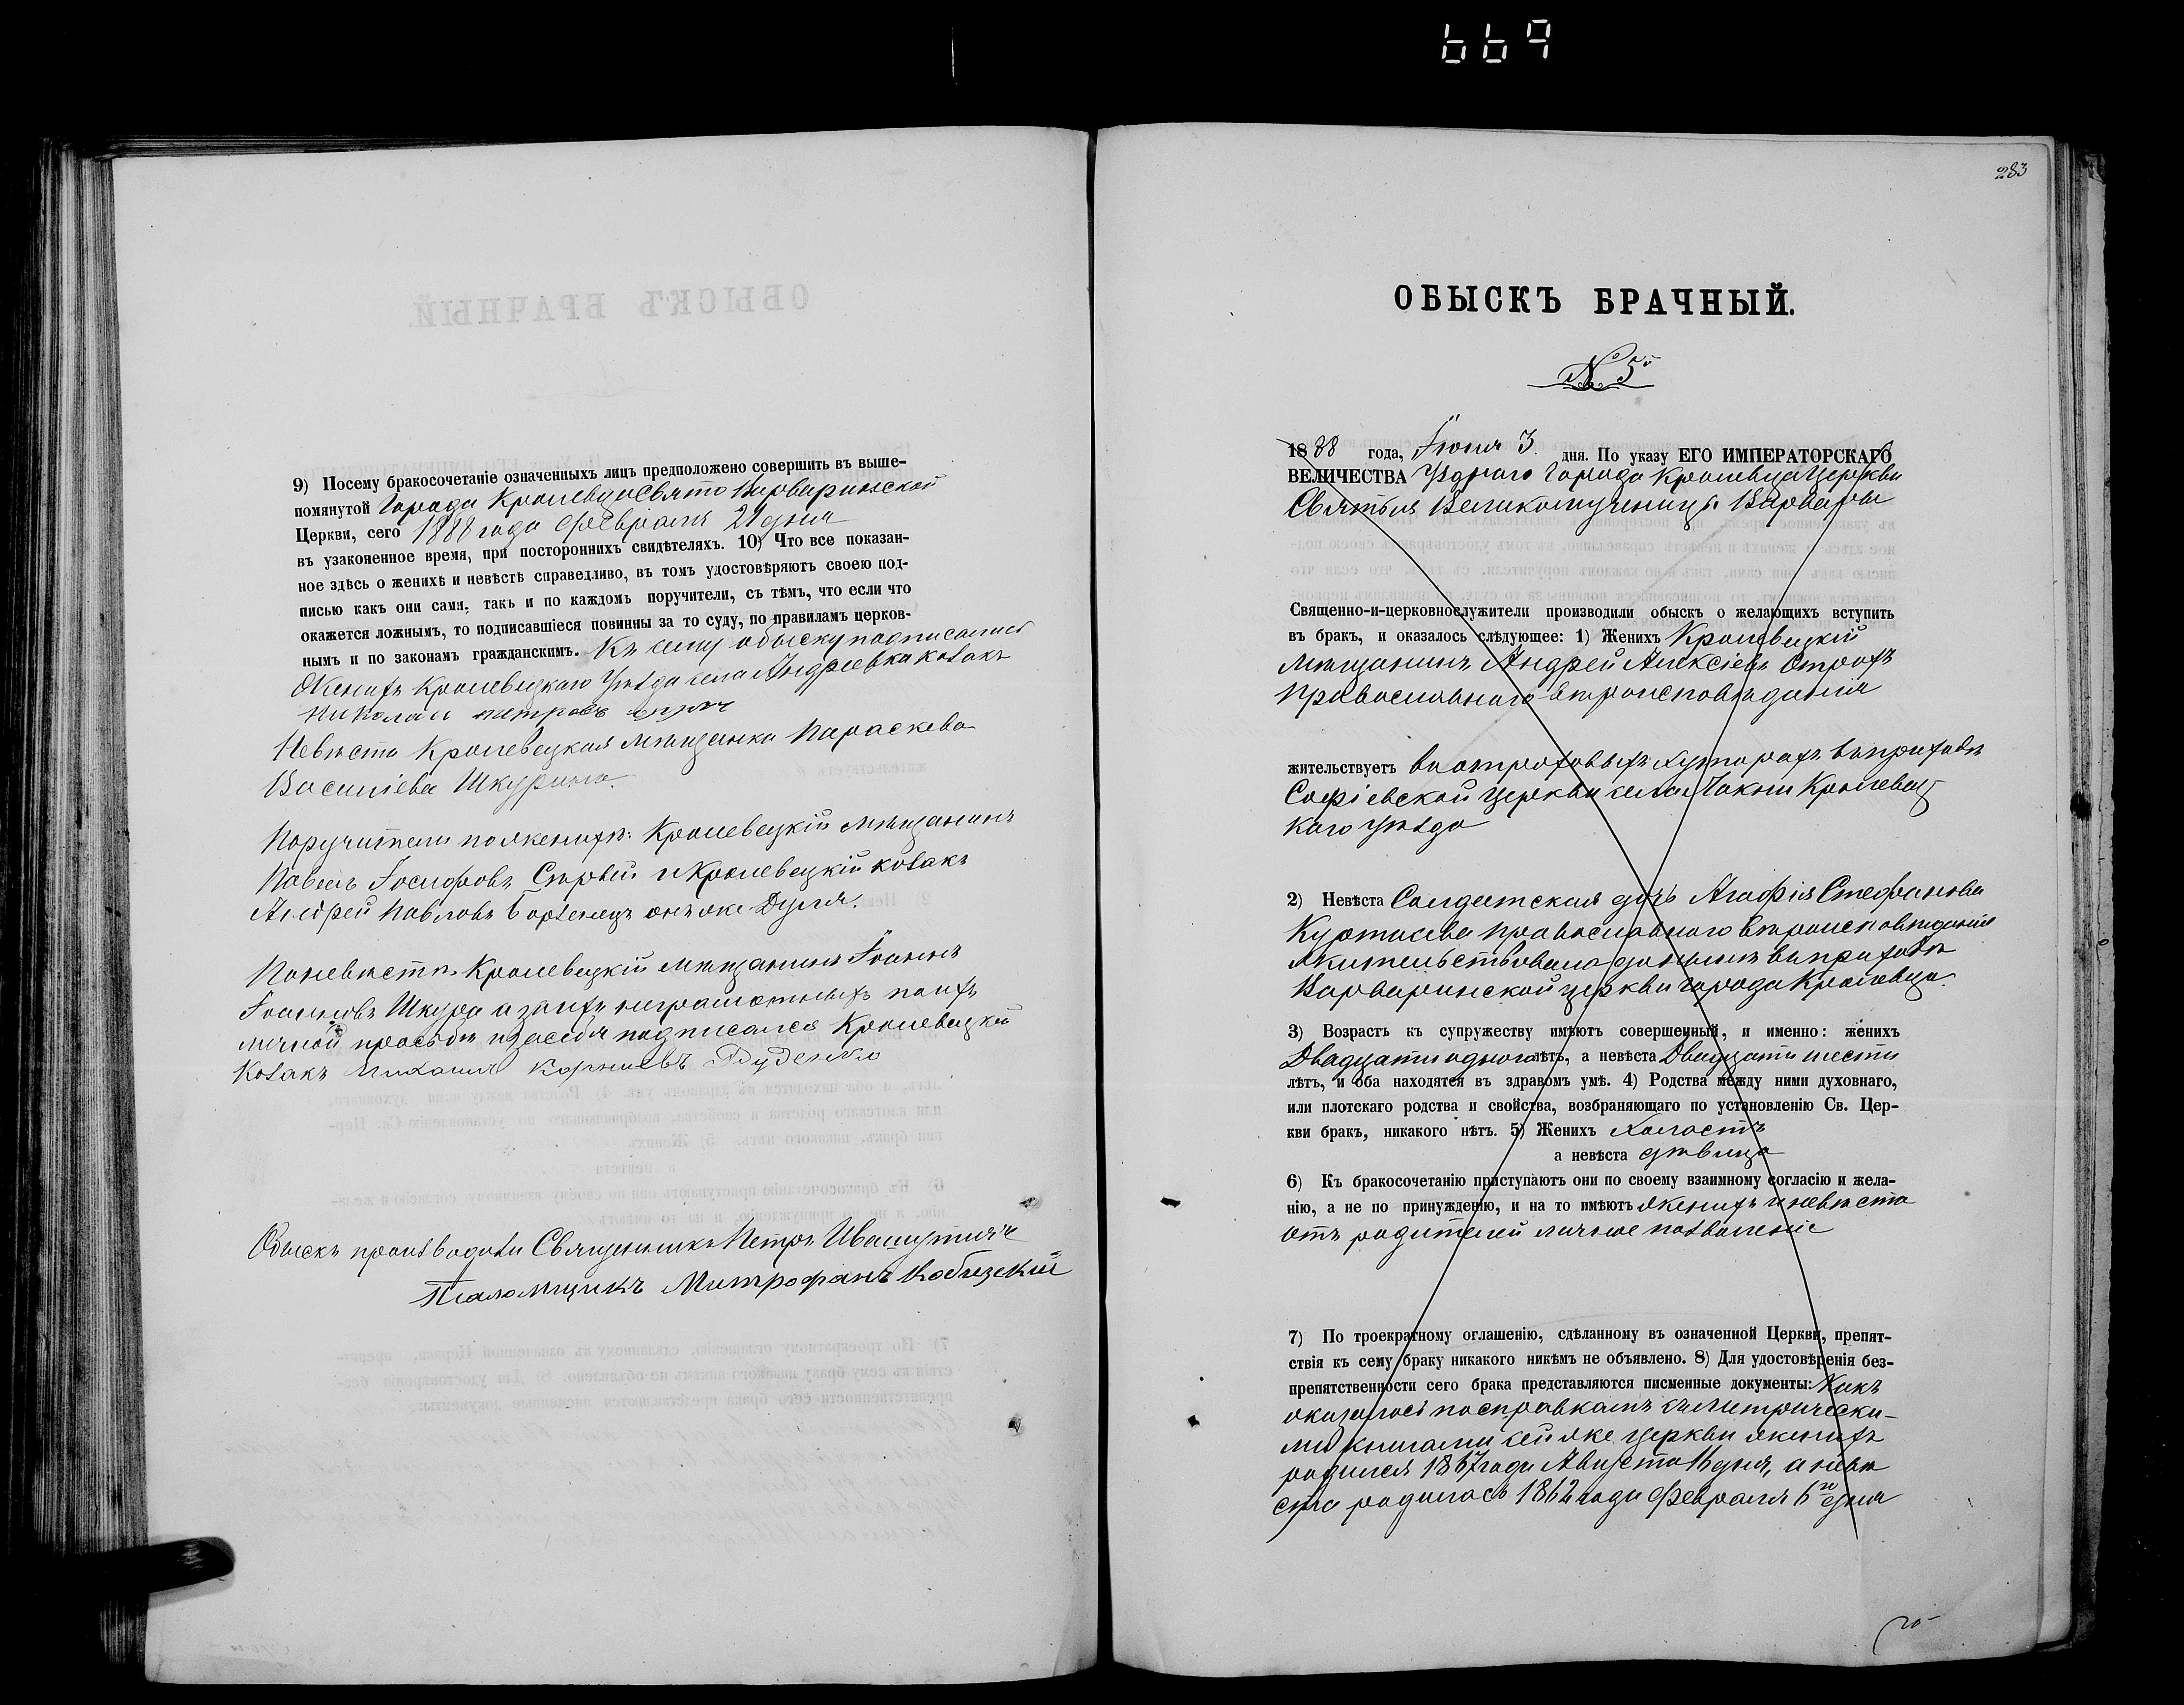 669
9) Посему бракосочетаніе означенныхъ лицъ предположено совершить въ выше-
помянутой Города Кролевца Свято Варваринской
Церкви, сего 1888 года Февраля 21 дня
въ узаконенное время, при постороннихъ свидѣтеляхъ. 10) Что все показан-
ное здѣсь о женихѣ и невѣстѣ справедливо, въ томъ удостовѣряютъ своею под-
писью какъ они сами, такъ и по каждомъ поручители, съ тѣмъ, что если что
окажется ложнымъ, то подписавшіеся повинны за то суду, по правиламъ церков-
нымъ и по законамъ гражданскимъ. Къ сему обыску подписались
Женихъ Кролевецкаго Уѣзда села Андреевки козакъ
Николай петровъ
Невѣста Кролевецкая мѣщанка Параскева
Василіева Шкурина.
Поручители по женихѣ: Кролевецкій мѣщанинъ
Павелъ Іосифовъ и Кролевецкій козакъ
Андрей Павловъ Борзенецъ онъ же Дуля.
По невѣстѣ Кролевецкій мѣщанинъ Іоаннъ
Іоанновъ Шкура а за ихъ неграмотныхъ по ихъ
личной просьбѣ и за себя подписался Кролевецкій
Козакъ Михаилъ Корніевъ Руденко
Обыскъ производили Священникъ Петръ
Псаломщикъ Митрофанъ
283
ОБЫСКЪ БРАЧНЫЙ.
№ 5
1888 года, Іюня 3 дня. По указу ЕГО ИМПЕРАТОРСКАГО
ВЕЛИЧЕСТВА Уѣднаго Города Кролевца Церкви
Святыя Великомученицы Варвары
Священно-и-церковнослужители производили обыскъ о желающихъ вступить
въ бракъ, и оказалось слѣдующее: 1) Женихъ Кролевецкій
мѣщанинъ Андрей Алексіевъ Острохъ
православнаго вѣроисповѣданія
жительствуетъ въ остроховыхъ хуторахъ въ приходѣ
Софіевской церкви села Чакши Кролевец
каго уѣзда
2) Невѣста Солдатская дочь Агафія Стефанова
православнаго вѣроисповѣданія
жительствовала донынѣ въ приходѣ
Варваринской церкви города Кролевца.
3) Возрастъ къ супружеству имѣютъ совершенный, и именно: женихъ
Двадцати одного лѣтъ, а невѣста Двадцати шести
лѣтъ, и оба находятся въ здравомъ умѣ. 4) Родства между ними духовнаго,
или плотскаго родства и свойства, возбраняющаго по установленію Св. Цер-
кви бракъ, никакого нѣтъ. 5) Женихъ Холостъ
а невѣста дѣвица
6) Къ бракосочетанію приступаютъ они по своему взаимному согласію и жела-
нію, а не по принужденію, и на то имѣютъ женихъ и невѣста
отъ родителей личное позволеніе
7) По троекратному оглашенію, сдѣланному въ означенной Церкви, препят-
ствія къ сему браку никакого никѣмъ не объявлено. 8) Для удостовѣренія без-
препятственности сего брака представляются писменные документы: Какъ
оказалось по справкамъ съ Метрически-
ми книгами сей же церкви женихъ
родился 1867 года Августа 16 дня, а невѣ
ста родилась 1862 года Февраля 6го дня